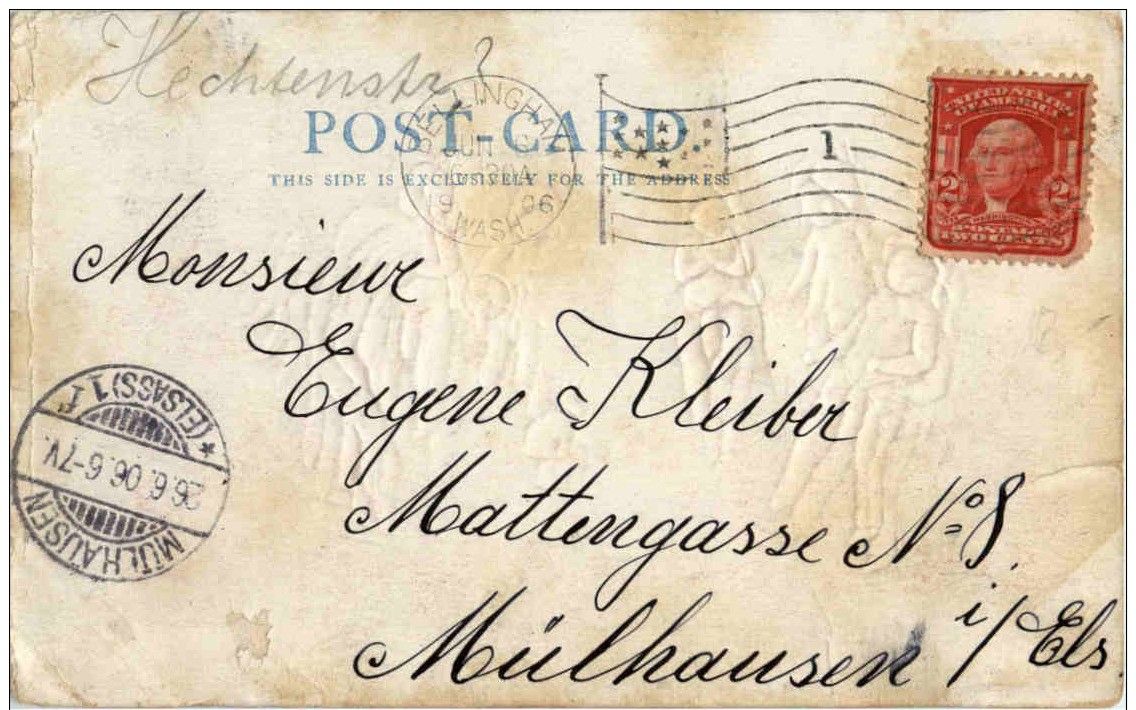 Hechtenstr ?
POST-CARD.
THIS SIDE IS EXCLUSIVELY FOR THE ADDRESS
BELLINGHAM
JUN
1906
WASH.
1
UNITED STATES
OF AMERICA
2 2
TWO CENTS
Monsieur
Eugene Kleiber
Mattengasse No 8.
Mülhausen i/Els
MÜLHAUSEN
26.6.06.6-7V.
* (ELSASS) 1 r